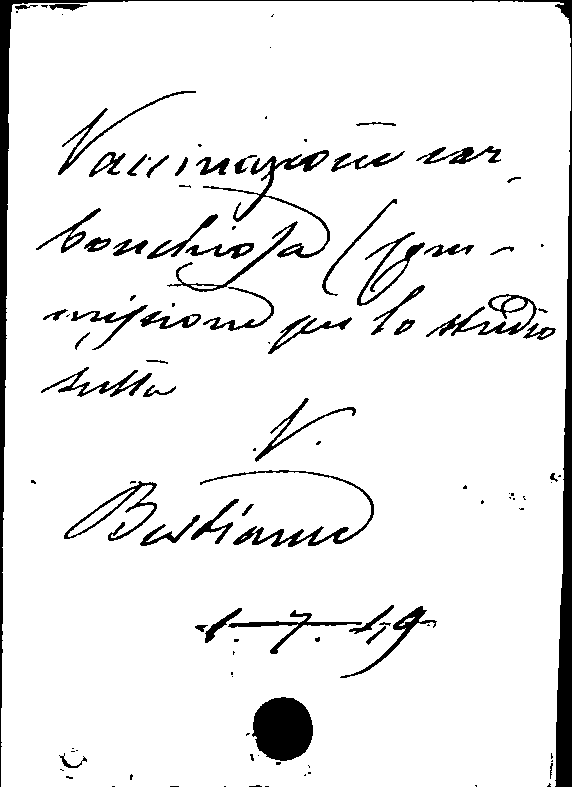 Vaccinazione car
bonchiosa (Com-
missione per lo studio
sulla
V.
Bastiano
1.7.49